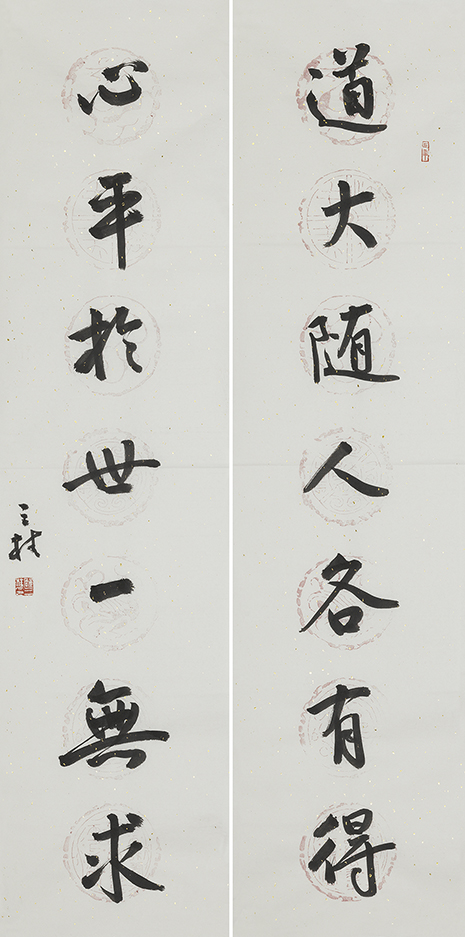 道大随人各有得
心平於世一無求